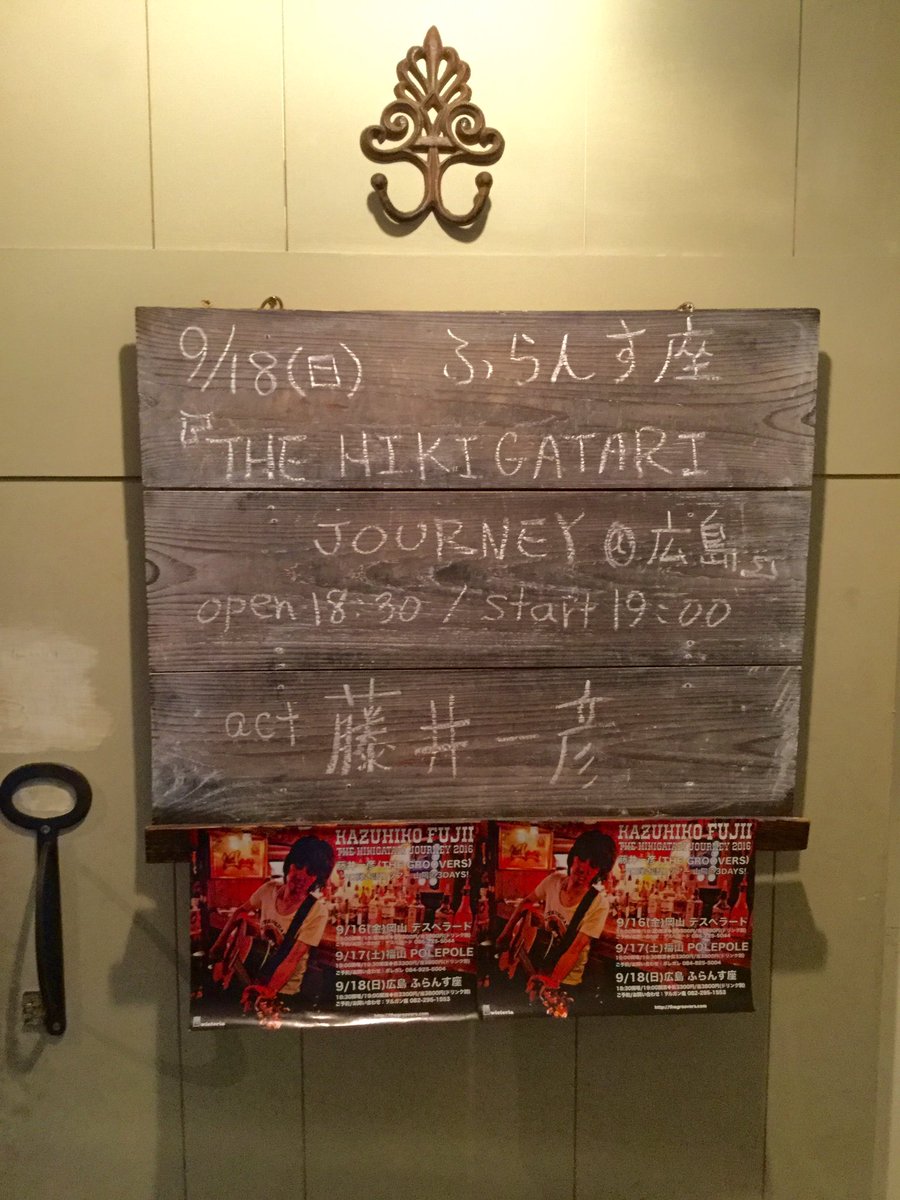 9/18(日) ふらんす座
『THE HIKIGATARI
JOURNEY @広島』
open 18:30 / start 19:00
act 藤井一彦
KAZUHIKO FUJII
THE HIKIGATARI JOURNEY 2016
藤井一彦(THE GROOVERS)
3DAYS!
9/16(金)岡山 デスペラード
9/17(土)福山 POLEPOLE
9/18(日)広島 ふらんす座
KAZUHIKO FUJII
THE HIKIGATARI JOURNEY 2016
藤井一彦(THE GROOVERS)
3DAYS!
9/16(金)岡山 デスペラード
9/17(土)福山 POLEPOLE
9/18(日)広島 ふらんす座
http://thegroovers.com